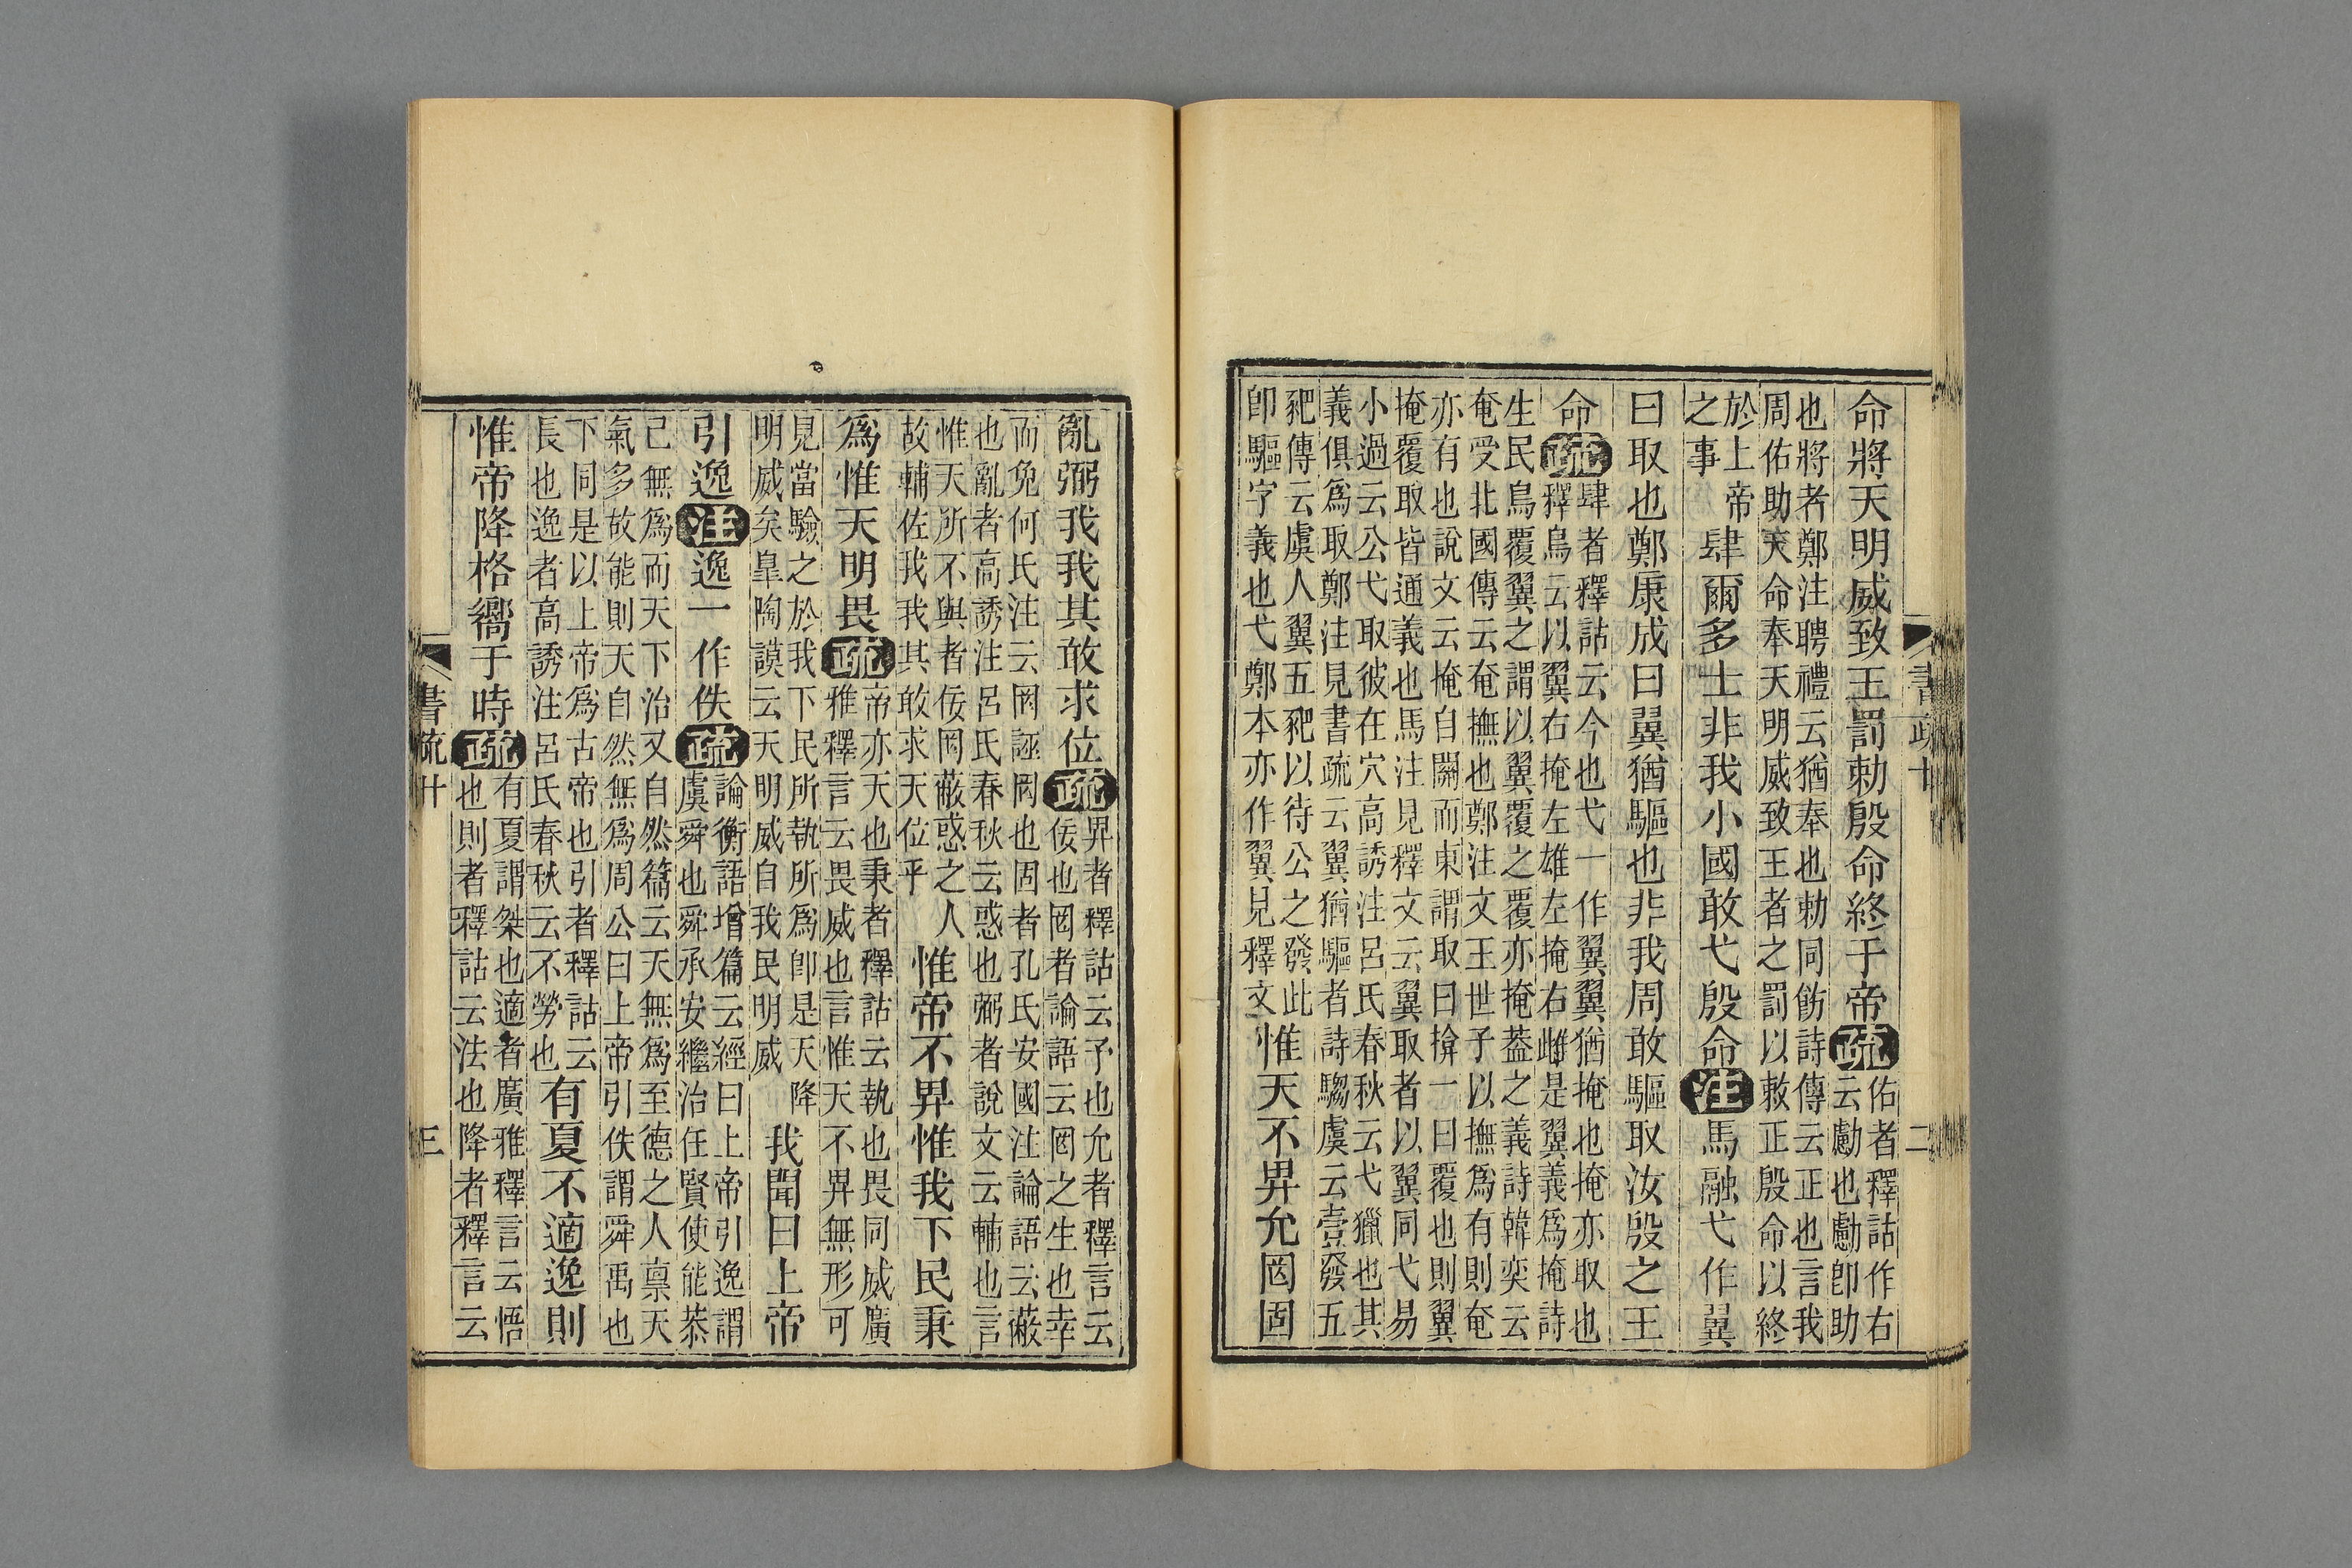 書疏十 二
命將天明威致王罰勅殷命終于帝疏佑者釋詁作右
云勴也勴卽助
也將者鄭注聘禮云猶奉也勅同飭詩傳云正也言我
周佑助天命奉天明威致王者之罰以敕正殷命以終
於上帝
之事
肆爾多士非我小國敢弋殷命注馬融弋作翼
曰取也鄭康成曰翼猶驅也非我周敢驅取汝殷之王
命疏肆者釋詁云今也弋一作翼翼猶掩也掩亦取也
釋鳥云以翼右掩左雄左掩右雌是翼義爲掩詩
生民鳥覆翼之謂以翼覆之覆亦掩葢之義詩韓奕云
奄受北國傳云奄撫也鄭注文王世子以撫爲有則奄
亦有也說文云掩自關而東謂取曰揜一曰覆也則翼
掩覆取皆通義也馬注見釋文云翼取者以翼同弋易
小過云公弋取彼在穴高誘注呂氏春秋云弋獵也其
義俱爲取鄭注見書疏云翼猶驅者詩騶虞云壹發五
豝傳云虞人翼五豝以待公之發此
卽驅字義也弋鄭本亦作翼見釋文
惟天不畀允罔固
亂弼我我其敢求位疏畀者釋詁云予也允者釋言云
佞也罔者論語云罔之生也幸
而免何氏注云罔誣罔也固者孔氏安國注論語云蔽
也亂者高誘注呂氏春秋云惑也弼者說文云輔也言
惟天所不與者佞罔蔽惑之人
故輔佐我我其敢求天位乎
惟帝不畀惟我下民秉
爲惟天明畏疏帝亦天也秉者釋詁云執也畏同威廣
雅釋言云畏威也言惟天不畀無形可
見當驗之於我下民所執所爲卽是天降
明威矣臯陶謨云天明威自我民明威
我聞曰上帝
引逸注逸一作佚疏論衡語增篇云經曰上帝引逸謂
虞舜也舜承安繼治任賢使能恭
己無爲而天下治又自然篇云天無爲至德之人稟天
氣多故能則天自然無爲周公曰上帝引佚謂舜禹也
下同是以上帝爲古帝也引者釋詁云
長也逸者高誘注呂氏春秋云不勞也
有夏不適逸則
惟帝降格嚮于時疏有夏謂桀也適者廣雅釋言云悟
也則者釋詁云法也降者釋言云
書疏十 三